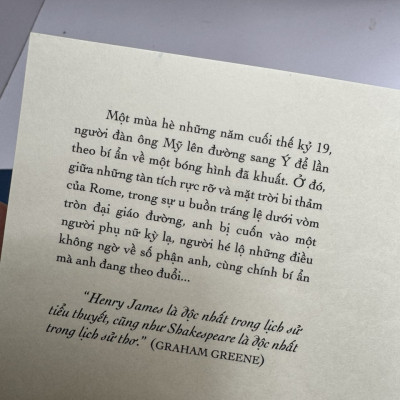 Một mùa hè những năm cuối thế kỷ 19,
người đàn ông Mỹ lên đường sang Ý để lần
theo bí ẩn về một bóng hình đã khuất. Ở đó,
giữa những tàn tích rực rỡ và mặt trời bi thảm
của Rome, trong sự u buồn tráng lệ dưới vòm
tròn đại giáo đường, anh bị cuốn vào một
người phụ nữ kỳ lạ, người hé lộ những điều
không ngờ về số phận anh, cùng chính bí ẩn
mà anh đang theo đuổi...
"Henry James là độc nhất trong lịch sử
tiểu thuyết, cũng như Shakespeare là độc nhất
trong lịch sử thơ." (GRAHAM GREENE)